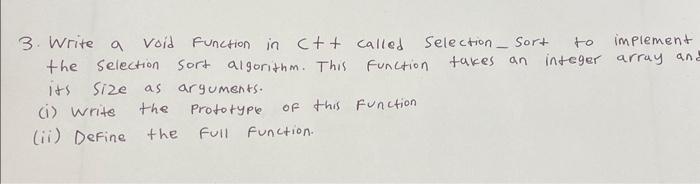 3. Write a void Function in C++ called Selection_Sort to implement
the selection sort algorithm. This function takes an integer array and
its size as arguments.
(i) Write the Prototype of this Function
(ii) Define the Full Function.